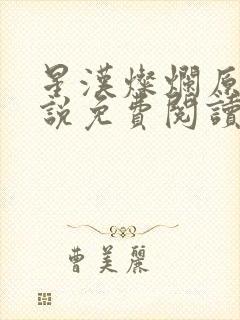 星漢燦爛原
說免費閱讀
曹美麗